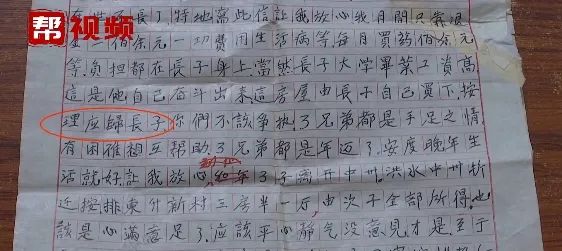 帮视频
子长了特地写此信让我放心我月间只靠退
金一佰余元一切费用生活病等,每月買药佰余元
等,负担都在長子身上,當然長子大學畢業工資高,
這是他自己奋斗出来這房屋由長子自己買下,按
理应歸長子你們不該争执,3兄弟都是手足之情
有困难想互帮助3兄弟都是年迈了,安度晚年生
活就好让我放心 年3子离开中卅,洪水中卅折
近按排東升新村三房半一厅,由次子全部所得,也
該是心滿意足了,应該平心靜气没意見才是至于